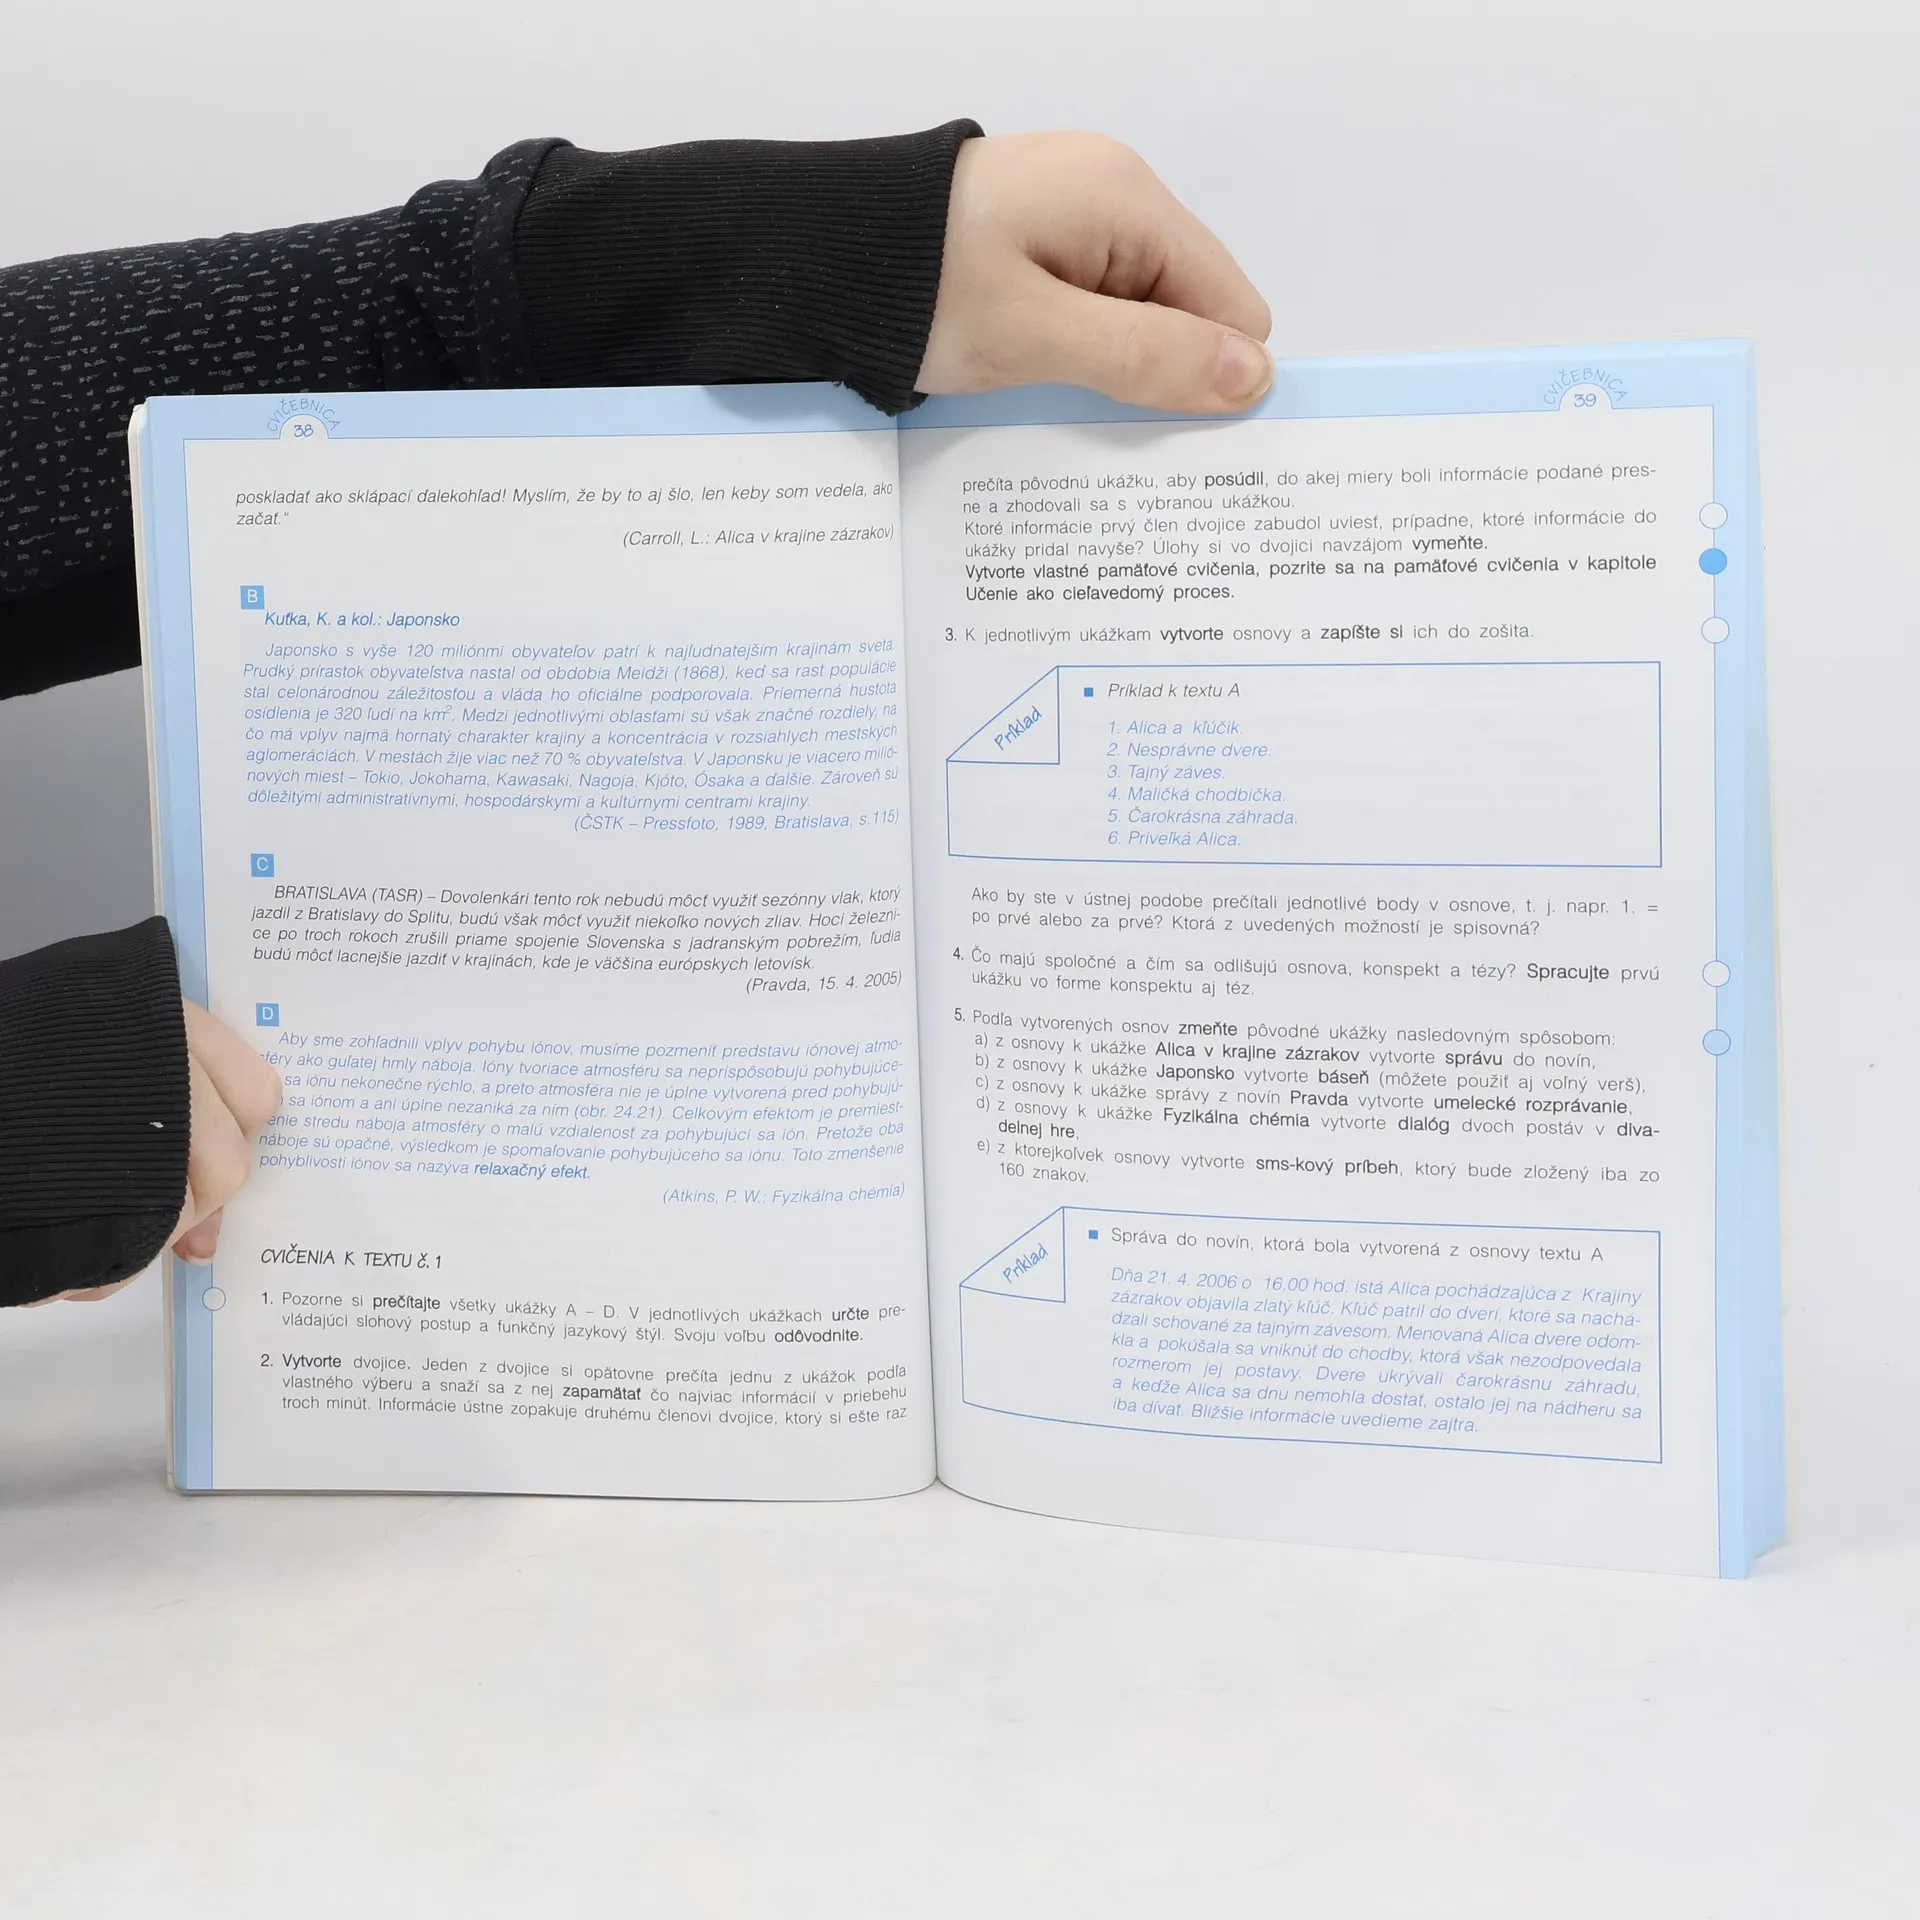 CVIČEBNICA
38
poskladať ako sklápací ďalekohľad! Myslím, že by to aj šlo, len keby som vedela, ako
začať.“
(Carroll, L.: Alica v krajine zázrakov)
B
Kuťka, K. a kol.: Japonsko
Japonsko s vyše 120 miliónmi obyvateľov patrí k najľudnatejším krajinám sveta.
Prudký prírastok obyvateľstva nastal od obdobia Meidži (1868), keď sa rast populácie
stal celonárodnou záležitosťou a vláda ho oficiálne podporovala. Priemerná hustota
osídlenia je 320 ľudí na km². Medzi jednotlivými oblasťami sú však značné rozdiely, na
čo má vplyv najmä hornatý charakter krajiny a koncentrácia v rozsiahlych mestských
aglomeráciách. V mestách žije viac než 70 % obyvateľstva. V Japonsku je viacero milió-
nových miest – Tokio, Jokohama, Kawasaki, Nagoja, Kjóto, Ósaka a ďalšie. Zároveň sú
dôležitými administratívnymi, hospodárskymi a kultúrnymi centrami krajiny.
(ČSTK – Pressfoto, 1989, Bratislava, s.115)
C
BRATISLAVA (TASR) – Dovolenkári tento rok nebudú môcť využiť sezónny vlak, ktorý
jazdil z Bratislavy do Splitu, budú však môcť využiť niekoľko nových zliav. Hoci železni-
ce po troch rokoch zrušili priame spojenie Slovenska s jadranským pobrežím, ľudia
budú môcť lacnejšie jazdiť v krajinách, kde je väčšina európskych letovísk.
(Pravda, 15. 4. 2005)
D
Aby sme zohľadnili vplyv pohybu iónov, musíme pozmeniť predstavu iónovej atmo-
sféry ako guľatej hmly náboja. Ióny tvoriace atmosféru sa neprispôsobujú pohybujúce-
sa iónu nekonečne rýchlo, a preto atmosféra nie je úplne vytvorená pred pohybujú-
sa iónom a ani úplne nezaniká za ním (obr. 24.21). Celkovým efektom je premiest-
enie stredu náboja atmosféry o malú vzdialenosť za pohybujúci sa ión. Pretože oba
náboje sú opačné, výsledkom je spomaľovanie pohybujúceho sa iónu. Toto zmenšenie
pohyblivosti iónov sa nazýva relaxačný efekt.
(Atkins, P. W.: Fyzikálna chémia)
CVIČENIA K TEXTU č. 1
1. Pozorne si prečítajte všetky ukážky A – D. V jednotlivých ukážkach určte pre-
vládajúci slohový postup a funkčný jazykový štýl. Svoju voľbu odôvodnite.
2. Vytvorte dvojice. Jeden z dvojice si opätovne prečíta jednu z ukážok podľa
vlastného výberu a snaží sa z nej zapamätať čo najviac informácií v priebehu
troch minút. Informácie ústne zopakuje druhému členovi dvojice, ktorý si ešte raz
CVIČEBNICA
39
prečíta pôvodnú ukážku, aby posúdil, do akej miery boli informácie podané pres-
ne a zhodovali sa s vybranou ukážkou.
Ktoré informácie prvý člen dvojice zabudol uviesť, prípadne, ktoré informácie do
ukážky pridal navyše? Úlohy si vo dvojici navzájom vymeňte.
Vytvorte vlastné pamäťové cvičenia, pozrite sa na pamäťové cvičenia v kapitole
Učenie ako cieľavedomý proces.
3. K jednotlivým ukážkam vytvorte osnovy a zapíšte si ich do zošita.
Príklad
Príklad k textu A
1. Alica a kľúčik.
2. Nesprávne dvere.
3. Tajný záves.
4. Maličká chodbička.
5. Čarokrásna záhrada.
6. Priveľká Alica.
Ako by ste v ústnej podobe prečítali jednotlivé body v osnove, t. j. napr. 1. =
po prvé alebo za prvé? Ktorá z uvedených možností je spisovná?
4. Čo majú spoločné a čím sa odlišujú osnova, konspekt a tézy? Spracujte prvú
ukážku vo forme konspektu aj téz.
5. Podľa vytvorených osnov zmeňte pôvodné ukážky nasledovným spôsobom:
a) z osnovy k ukážke Alica v krajine zázrakov vytvorte správu do novín,
b) z osnovy k ukážke Japonsko vytvorte báseň (môžete použiť aj voľný verš),
c) z osnovy k ukážke správy z novín Pravda vytvorte umelecké rozprávanie,
d) z osnovy k ukážke Fyzikálna chémia vytvorte dialóg dvoch postáv v diva-
delnej hre,
e) z ktorejkoľvek osnovy vytvorte sms-kový príbeh, ktorý bude zložený iba zo
160 znakov.
Príklad
Správa do novín, ktorá bola vytvorená z osnovy textu A
Dňa 21. 4. 2006 o 16,00 hod. istá Alica pochádzajúca z Krajiny
zázrakov objavila zlatý kľúč. Kľúč patril do dverí, ktoré sa nachá-
dzali schované za tajným závesom. Menovaná Alica dvere odom-
kla a pokúšala sa vniknúť do chodby, ktorá však nezodpovedala
rozmerom jej postavy. Dvere ukrývali čarokrásnu záhradu,
a keďže Alica sa dnu nemohla dostať, ostalo jej na nádheru sa
iba dívať. Bližšie informácie uvedieme zajtra.